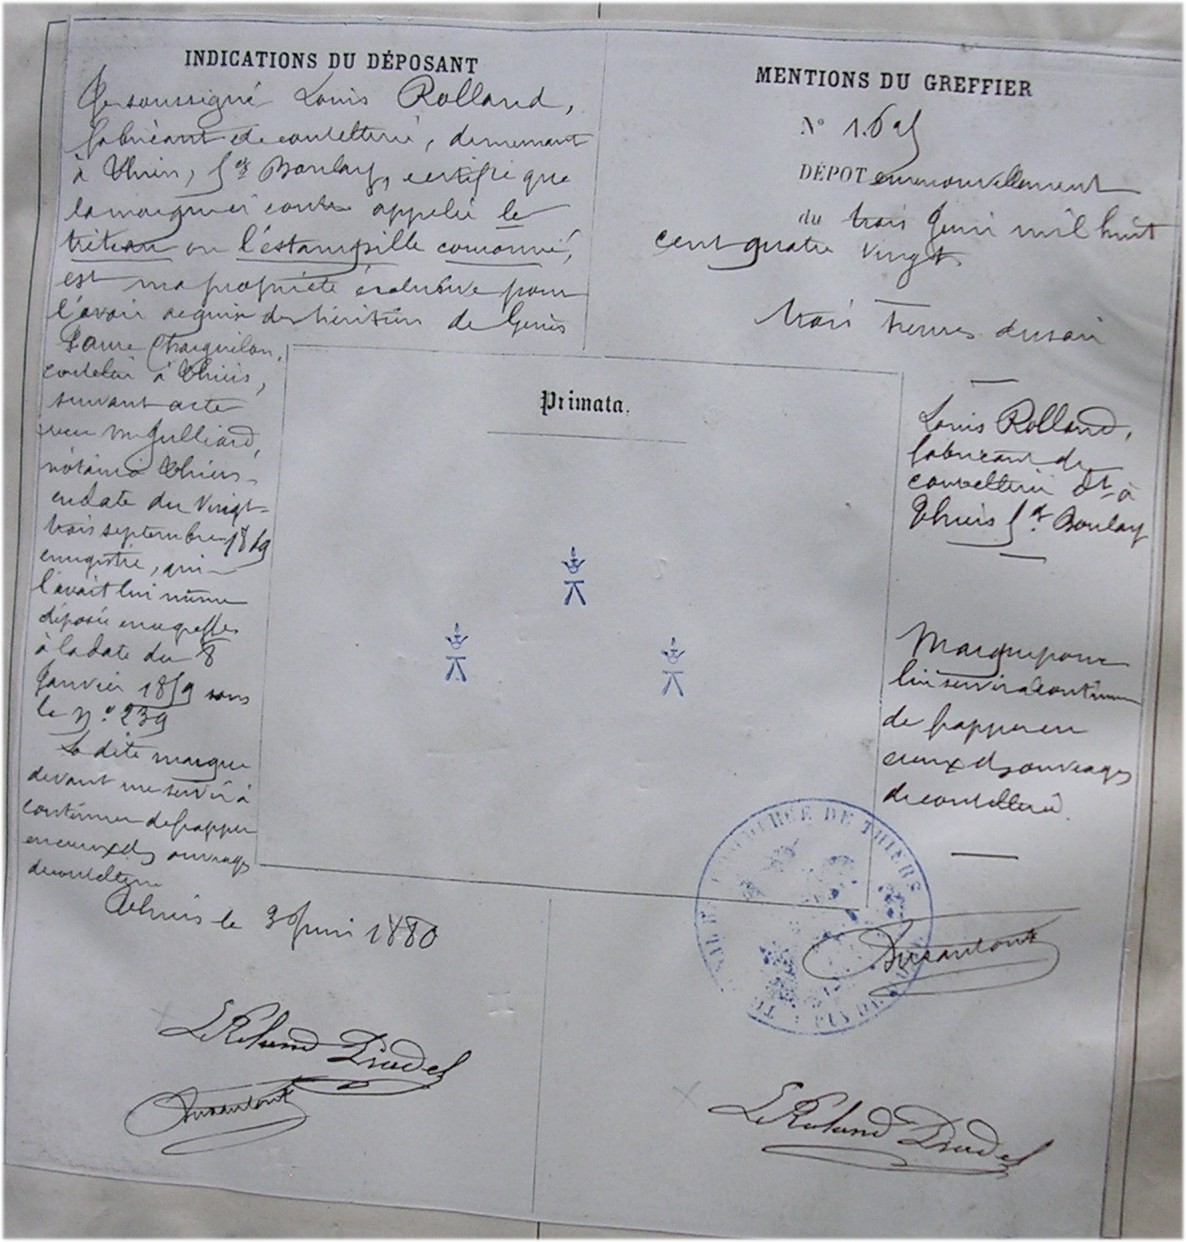 INDICATIONS DU DÉPOSANT
Je soussigné Louis Rolland,
fabricant de coutellerie, demeurant
à Thiers, fg Boulay, certifie que
la marque ci contre appelée le
tréteau ou l'estampille couronné,
est ma propriété exclusive pour
l'avoir acquise des héritiers de Genès
coutelier à Thiers,
suivant acte
reçu Me
notaire à Thiers
en date du vingt-
trois septembre
enregistré, qui
l'avait lui même
déposée au greffe
à la date du 8
Janvier 1859 sous
le No 239
La dite marque
devant me servir à
continuer de frapper
en creux des ouvrages
de coutellerie
Thiers le 3 Juin 1880
MENTIONS DU GREFFIER
No
DÉPOT en renouvellement
du trois Juin mil huit
cent quatre vingt
trois heures du soir
Primata.
Louis Rolland,
fabricant de
coutellerie dt à
Thiers fg Boulay
Marque pour
lui servir à continuer
de frapper en
creux des ouvrages
de coutellerie.
COMMERCE DE THIERS